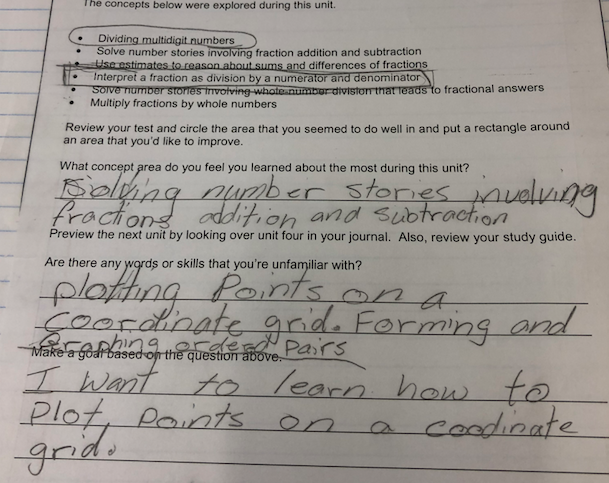 The concepts below were explored during this unit.
• Dividing multidigit numbers
• Solve number stories involving fraction addition and subtraction
• Use estimates to reason about sums and differences of fractions
• Interpret a fraction as division by a numerator and denominator
• Solve number stories involving whole-number division that leads to fractional answers
• Multiply fractions by whole numbers
Review your test and circle the area that you seemed to do well in and put a rectangle around
an area that you'd like to improve.
What concept area do you feel you learned about the most during this unit?
Solving number stories involving
fractions addition and subtraction
Preview the next unit by looking over unit four in your journal. Also, review your study guide.
Are there any words or skills that you're unfamiliar with?
plotting Points on a
coordinate grid. Forming and
Graphing ordered Pairs
Make a goal based on the question above.
I want to learn how to
Plot, Points on a coodinate
grid.